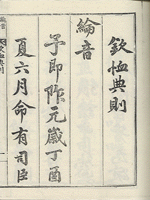 欽恤典則
綸音
予即阼元歲丁酉
夏六月命有司臣